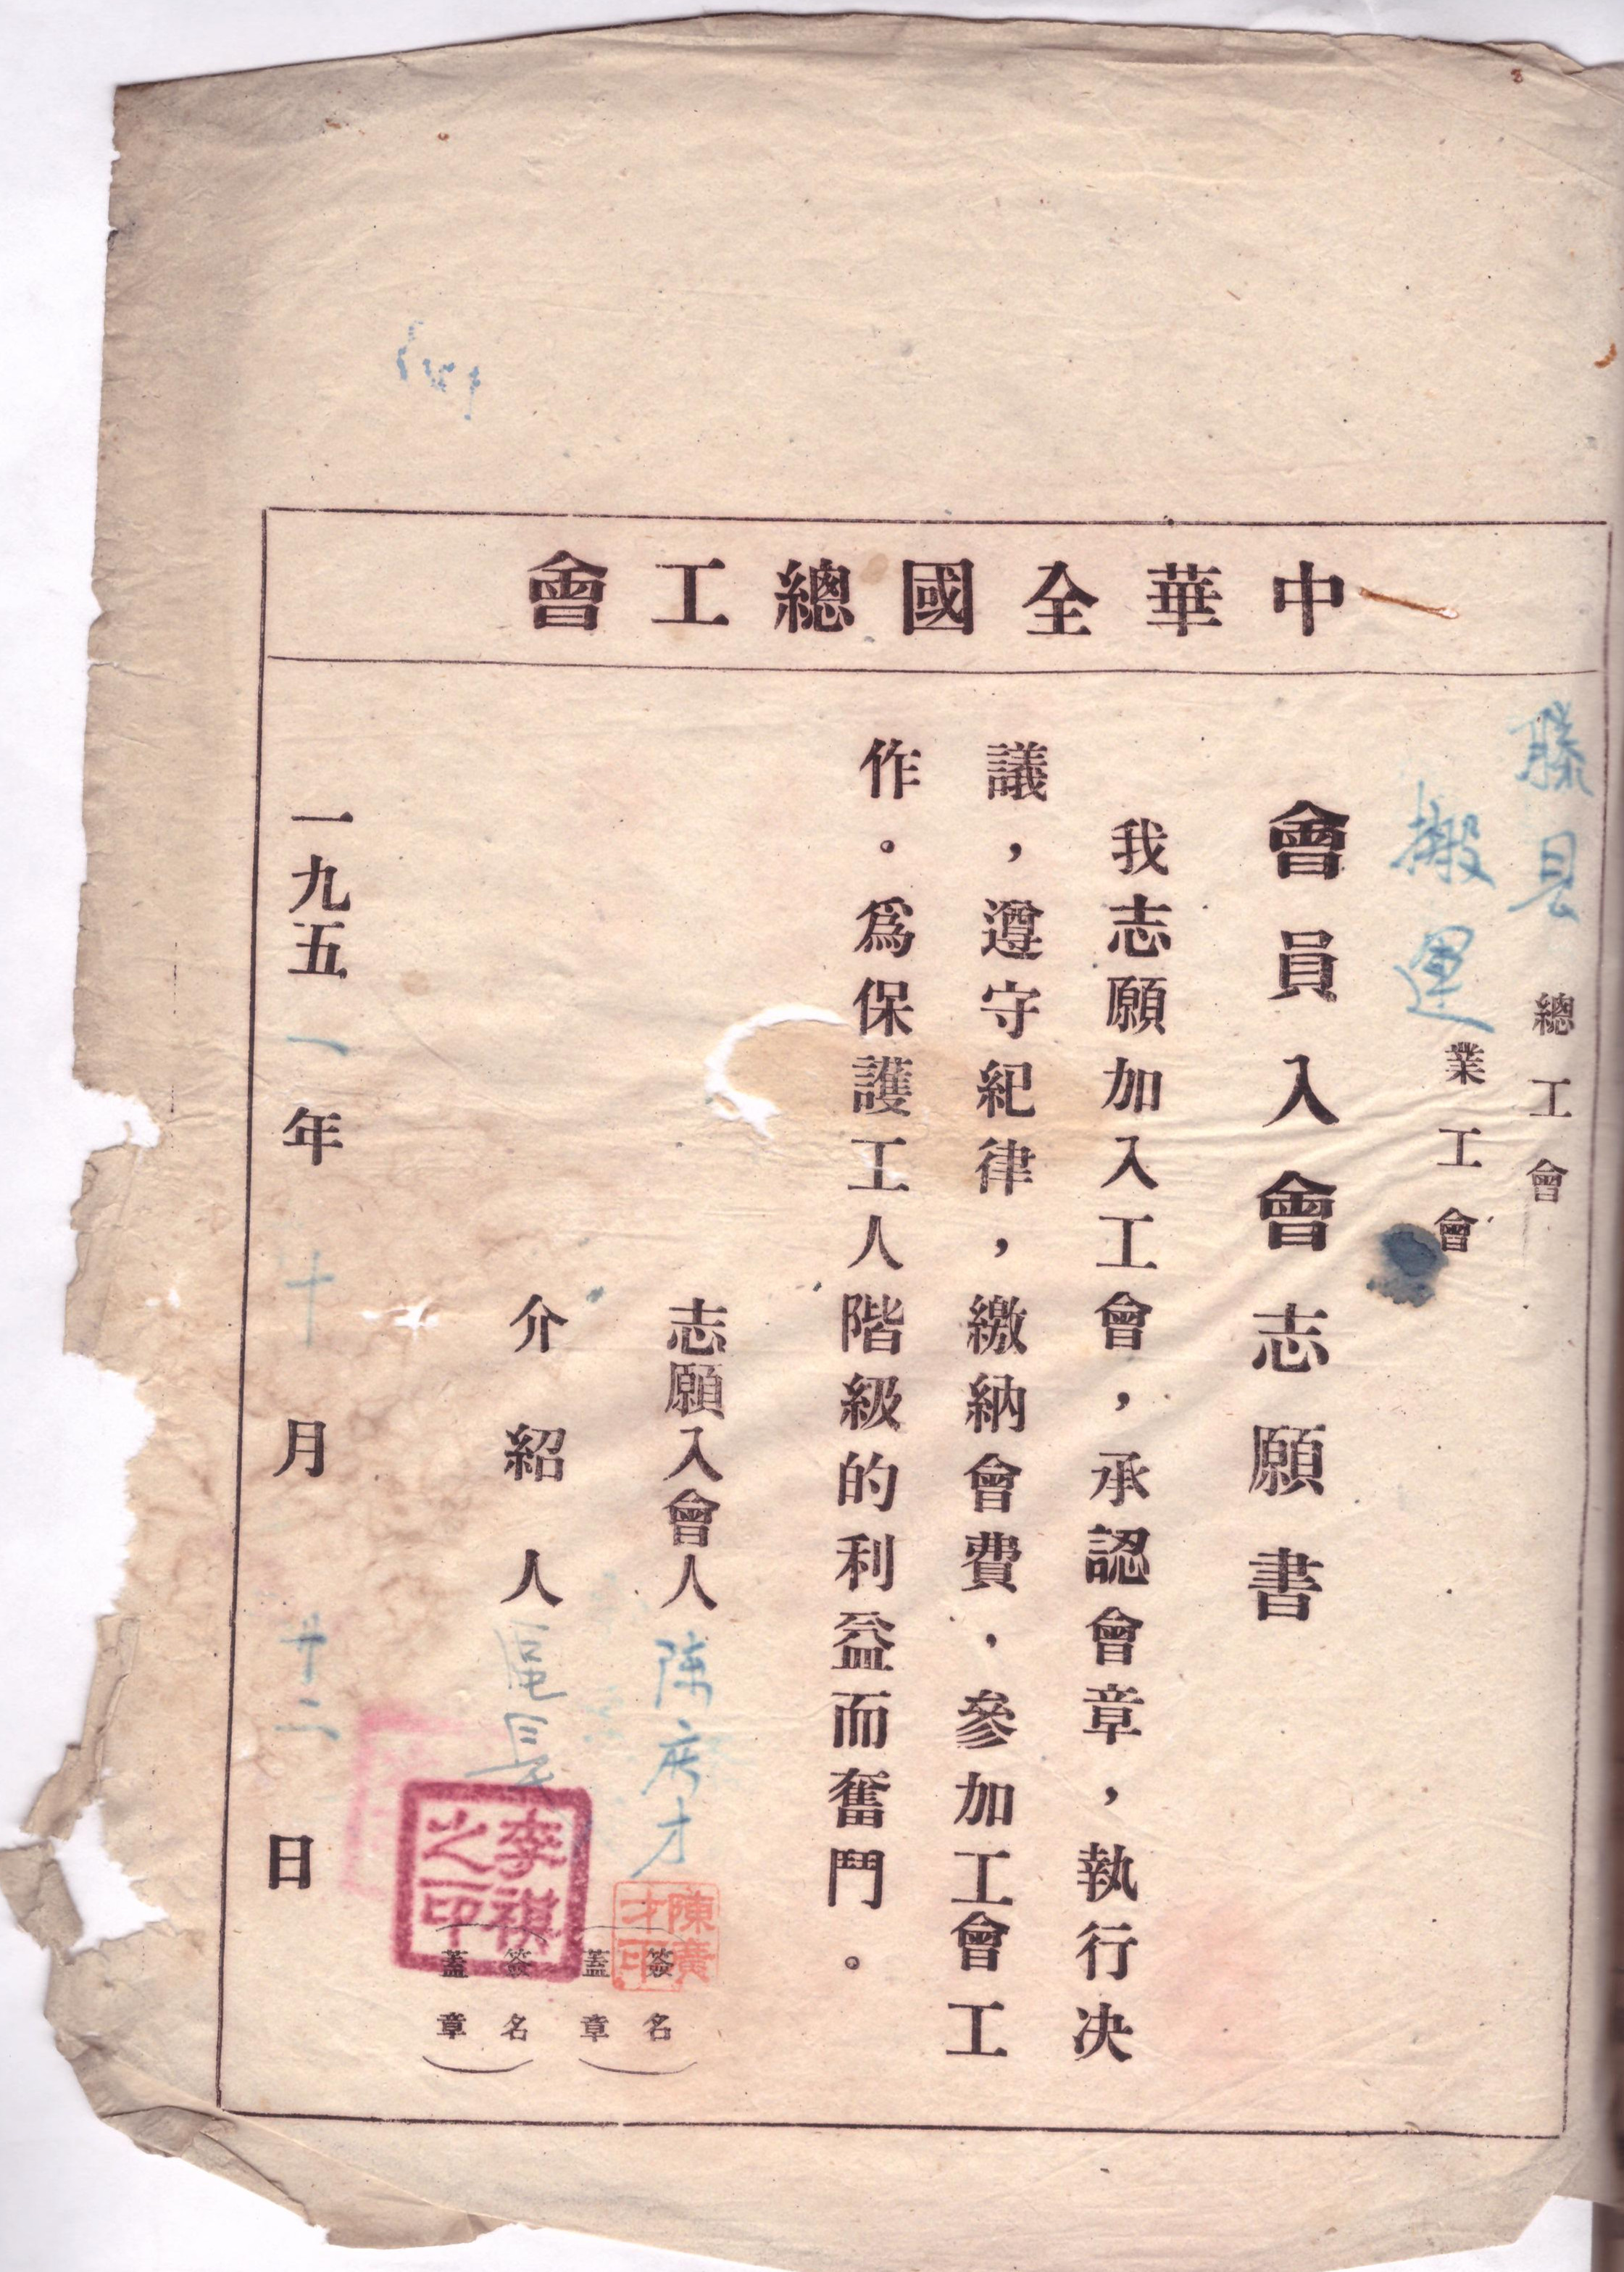 中華全國總工會
滕縣總工會
搬運業工會
會員入會志願書
我志願加入工會，承認會章，執行決
議，遵守紀律，繳納會費，參加工會工
作。爲保護工人階級的利益而奮鬥。
志願入會人 陳广才 （簽名蓋章）
陳廣才印
介紹人 （簽名蓋章）
李祺之印
一九五一年十月廿二日